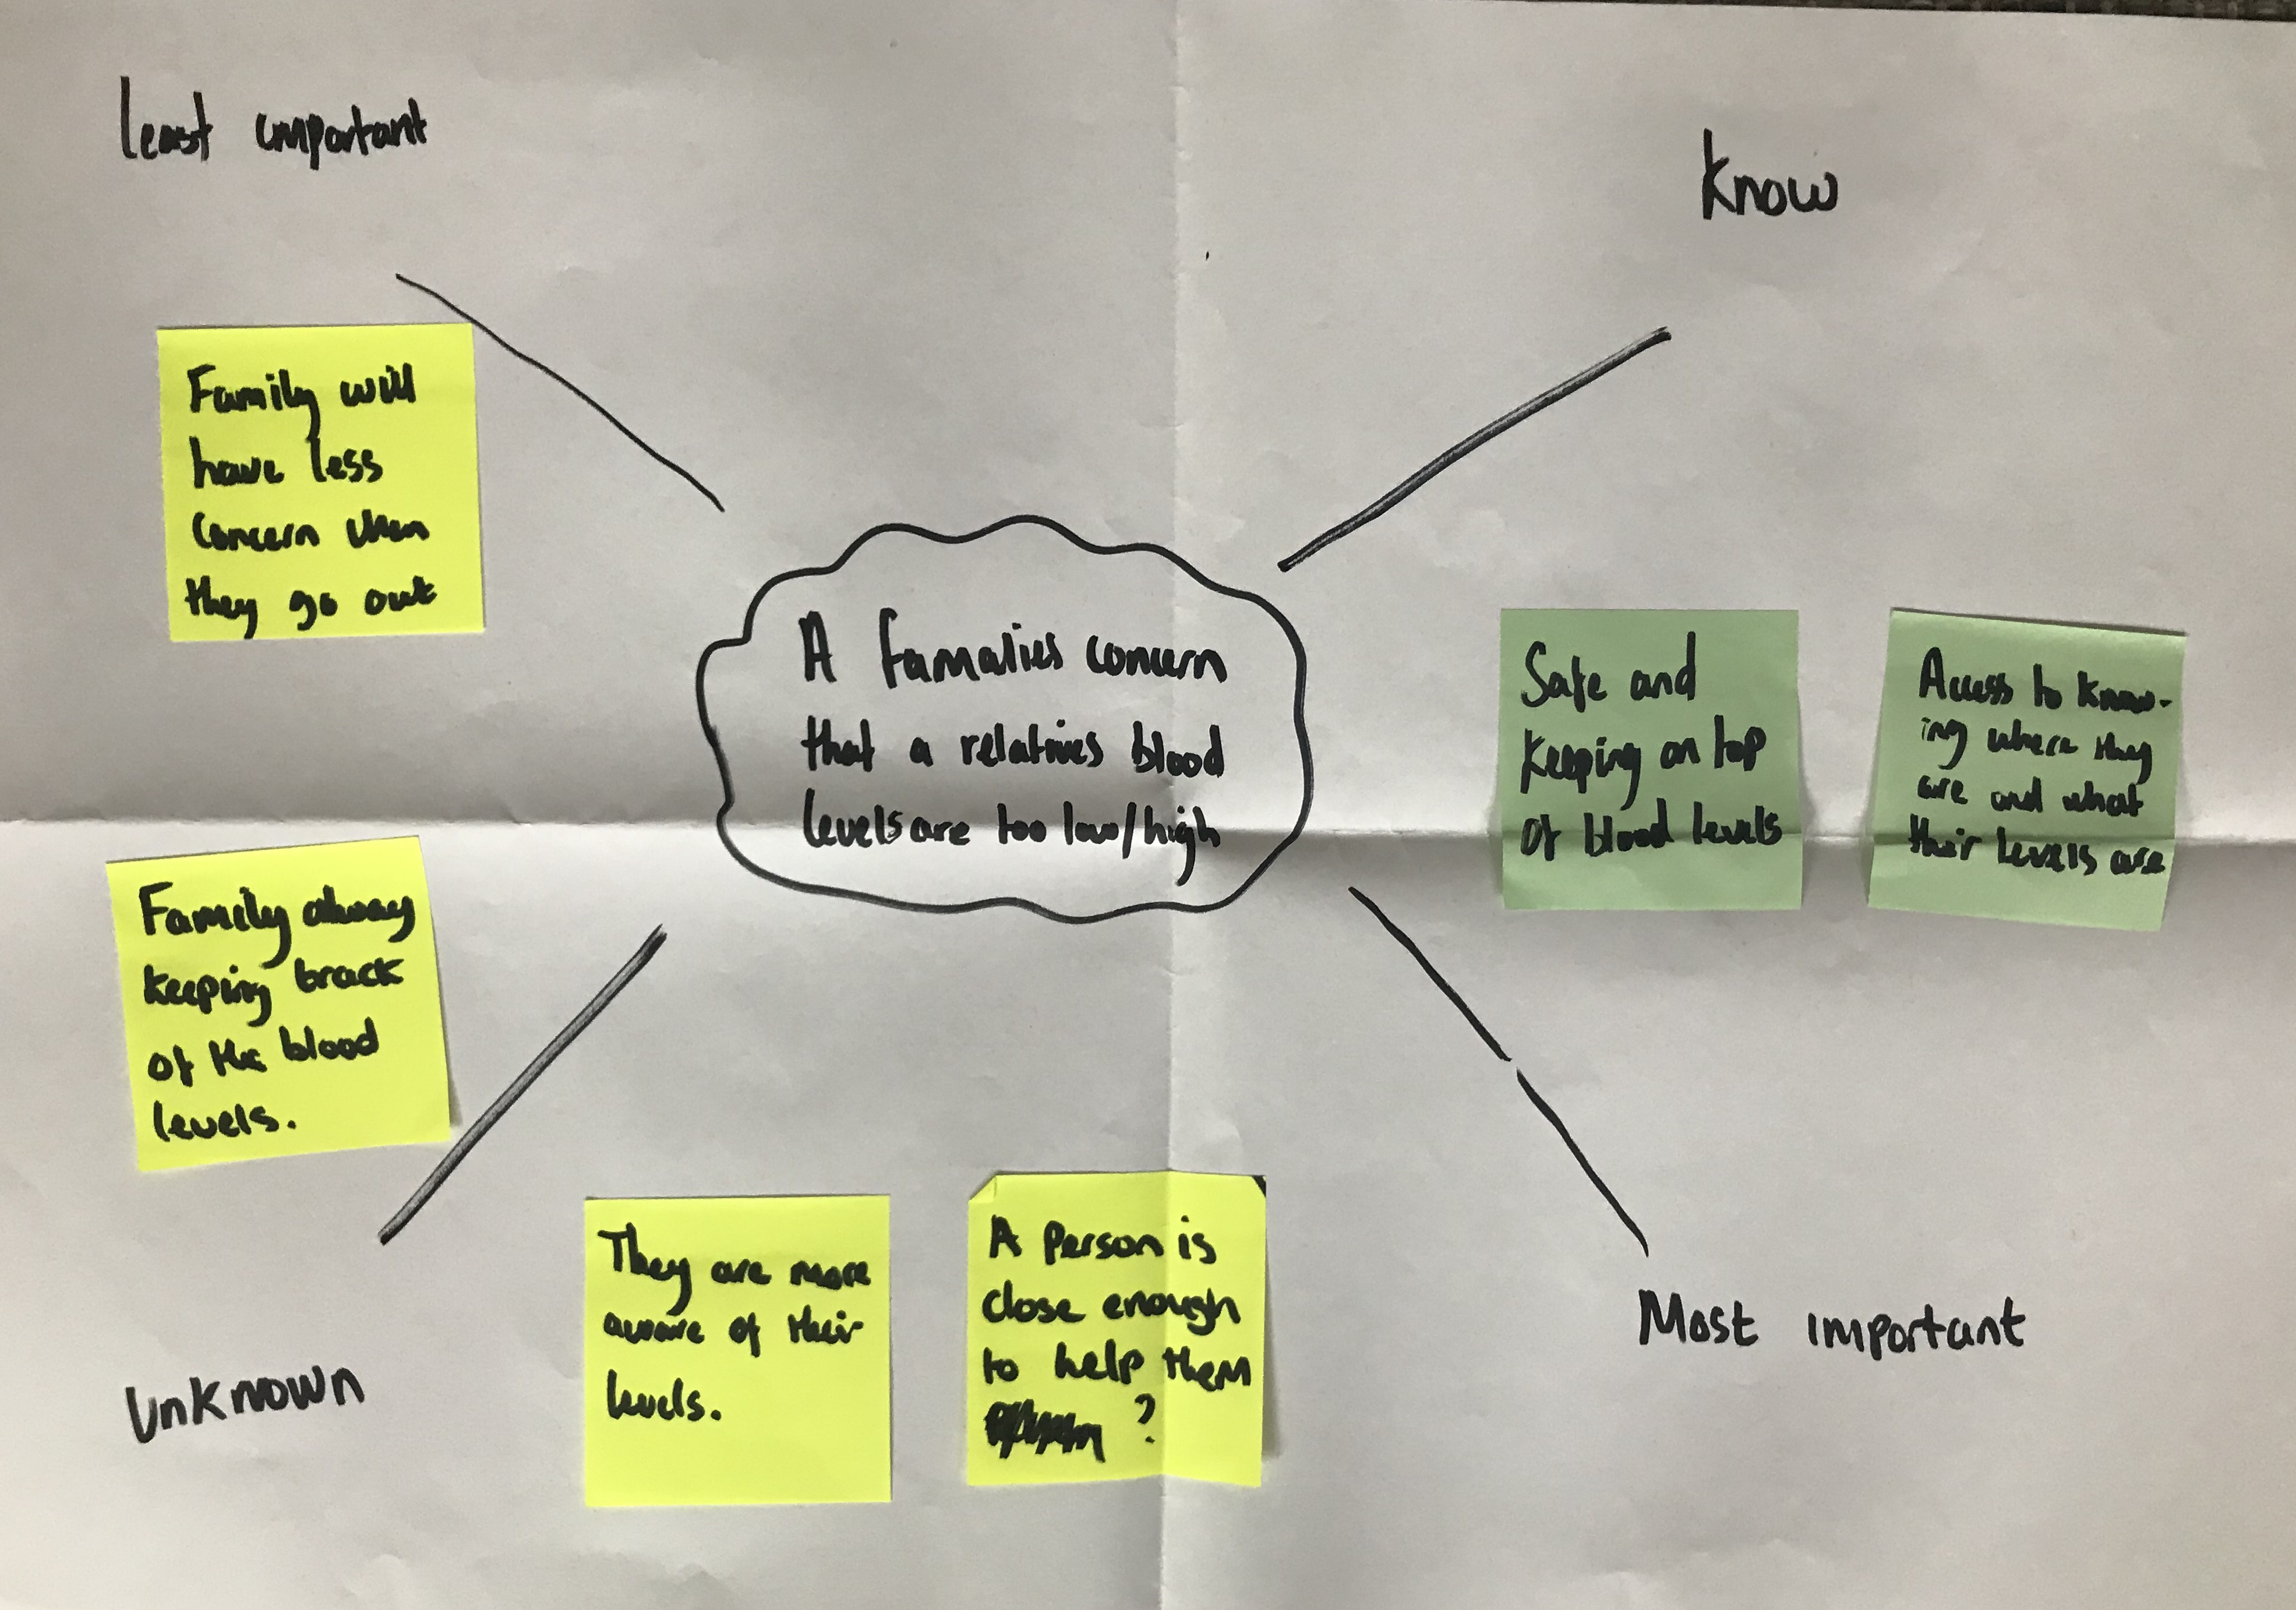 least important
Know
Family will
have less
concern when
they go out
A famalies concern
that a relatives blood
levels are too low/high
Safe and
keeping on top
of blood levels
Access to know-
ing where they
are and what
their levels are
Family alway
keeping track
of the blood
levels.
They are more
aware of their
levels.
A person is
close enough
to help them
?
Most important
Unknown